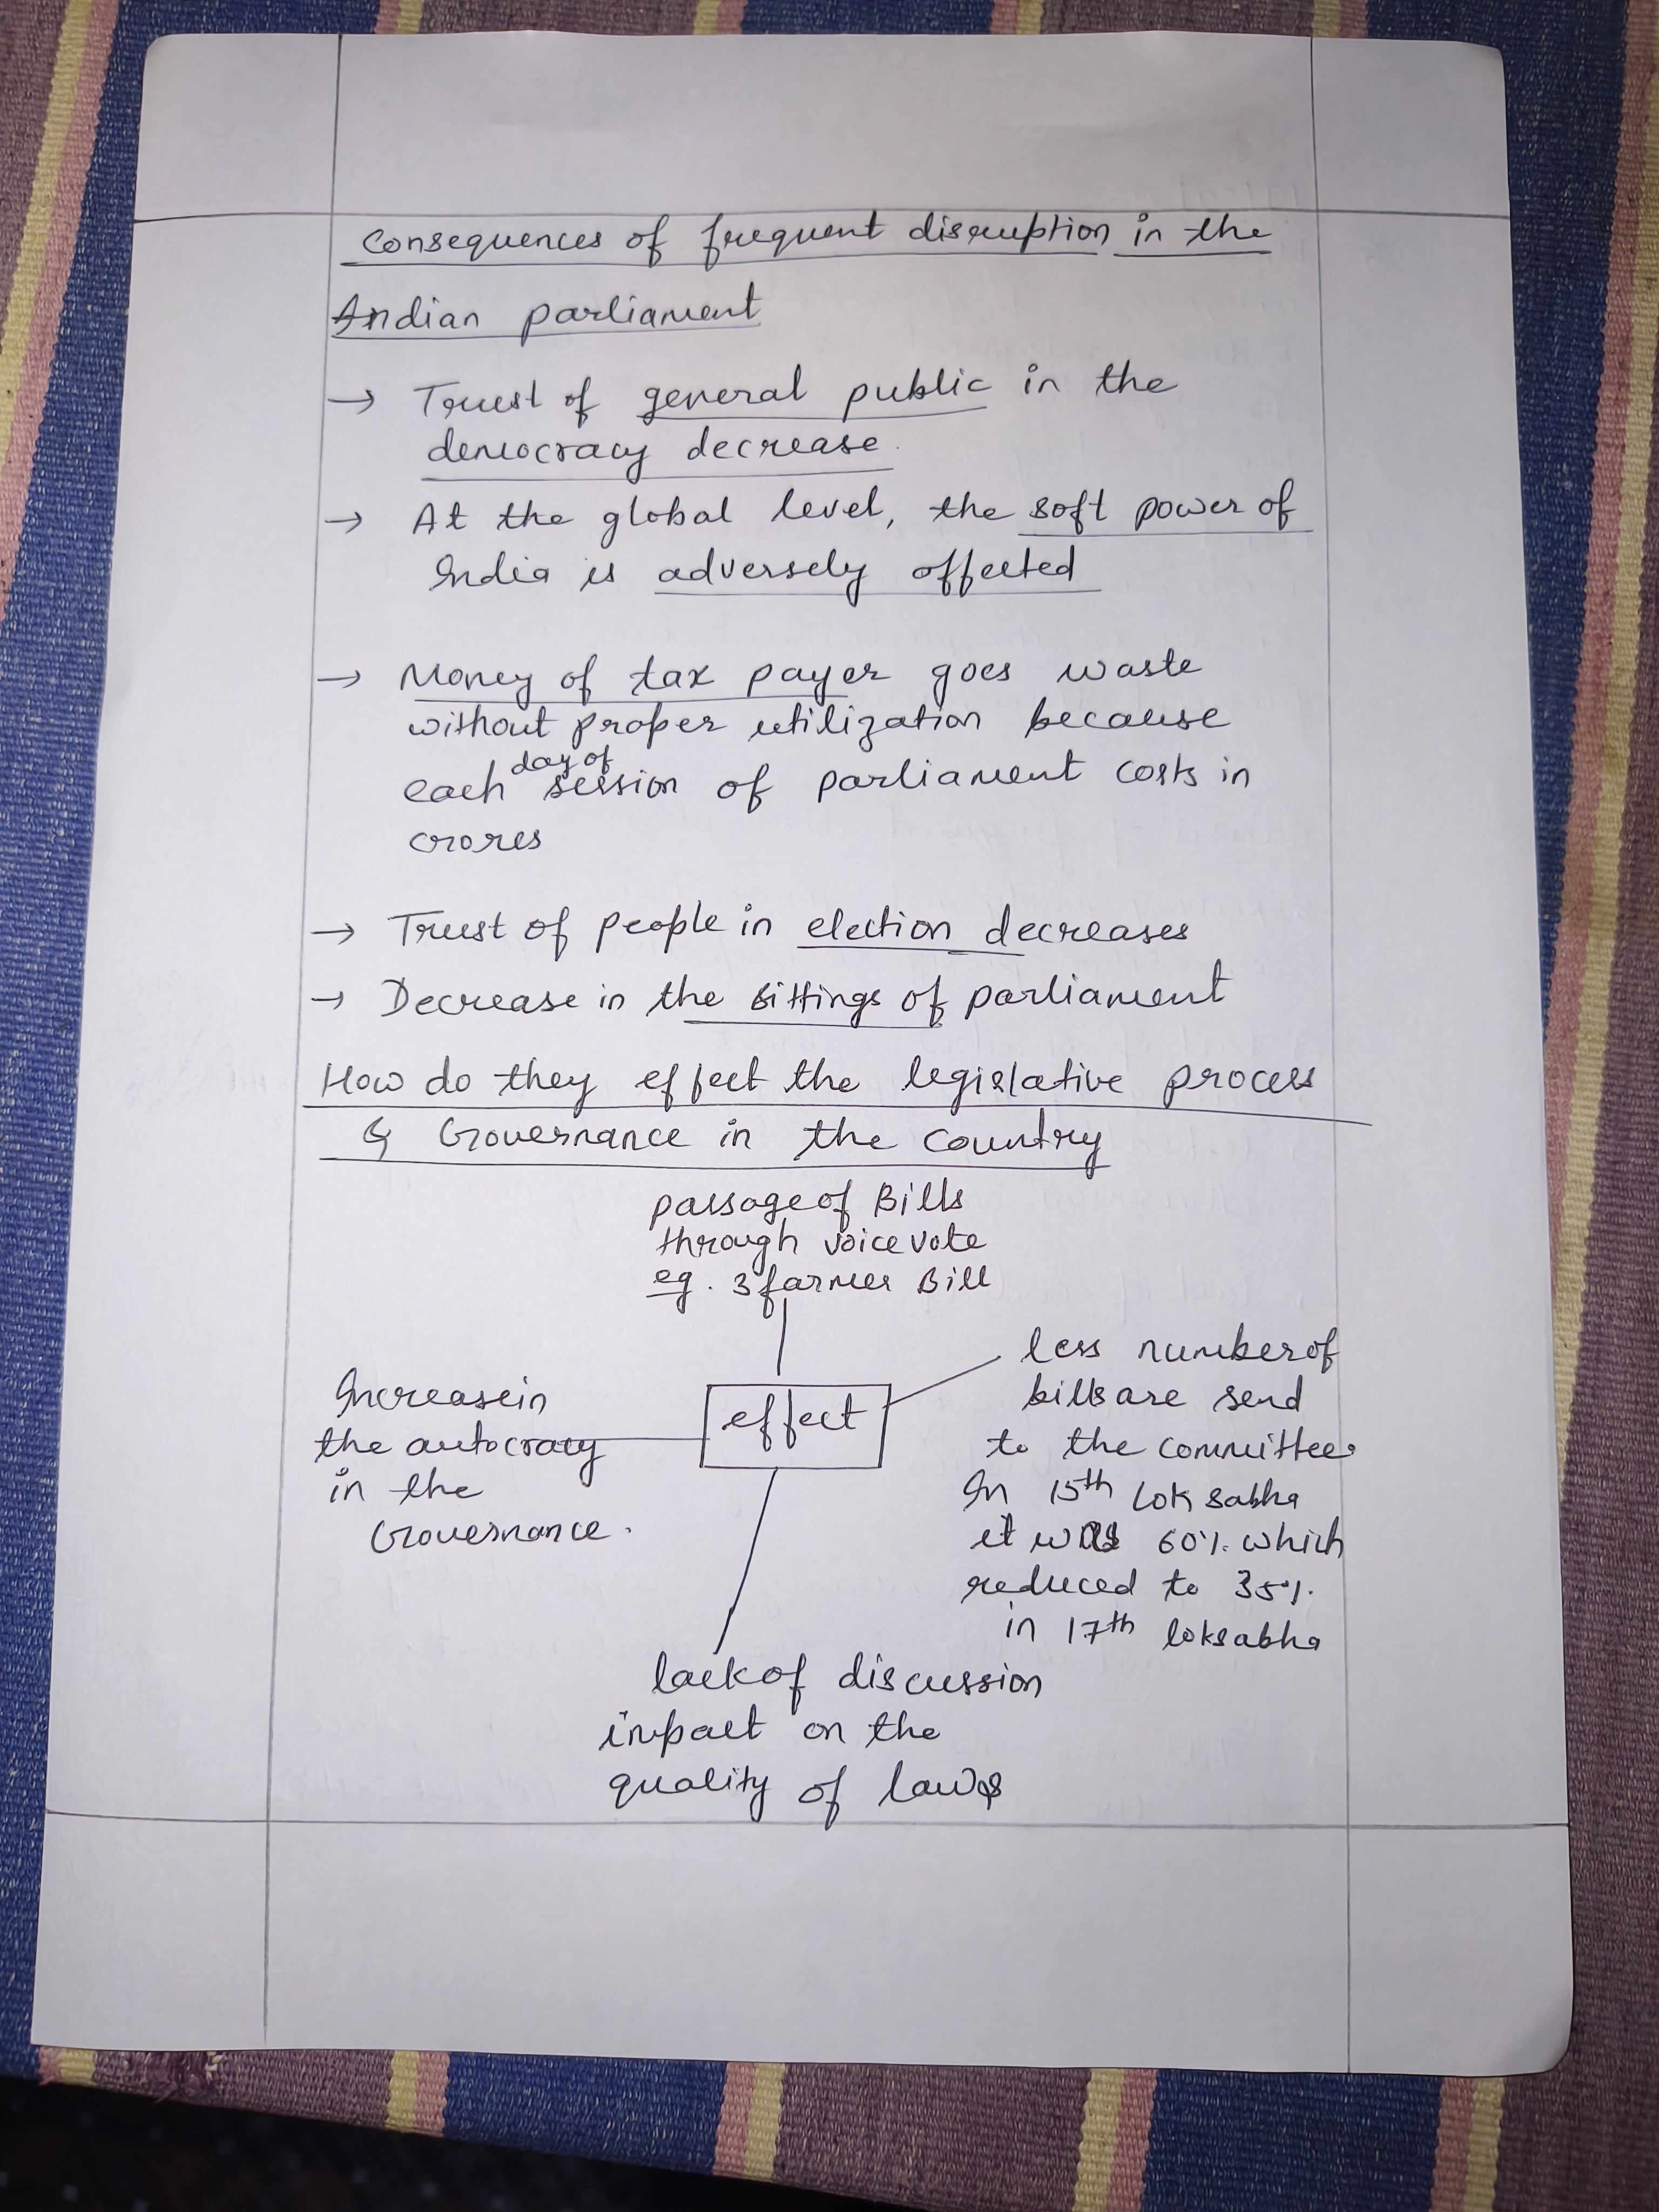 Consequences of frequent disruption in the
Indian parliament
→ Trust of general public in the
democracy decrease.
→ At the global level, the soft power of
India is adversely affected
→ Money of tax payer goes waste
without proper utilization because
each day of session of parliament costs in
crores
→ Trust of people in election decreases
→ Decrease in the sittings of parliament
How do they effect the legislative process
& Governance in the country
passage of Bills
through voice vote
eg. 3 farmer Bill
effect
less number of
bills are send
to the committee
In 15th Lok sabha
it was 60% which
reduced to 35%
in 17th loksabha
Increase in
the autocracy
in the
Governance.
lack of discussion
impact on the
quality of laws